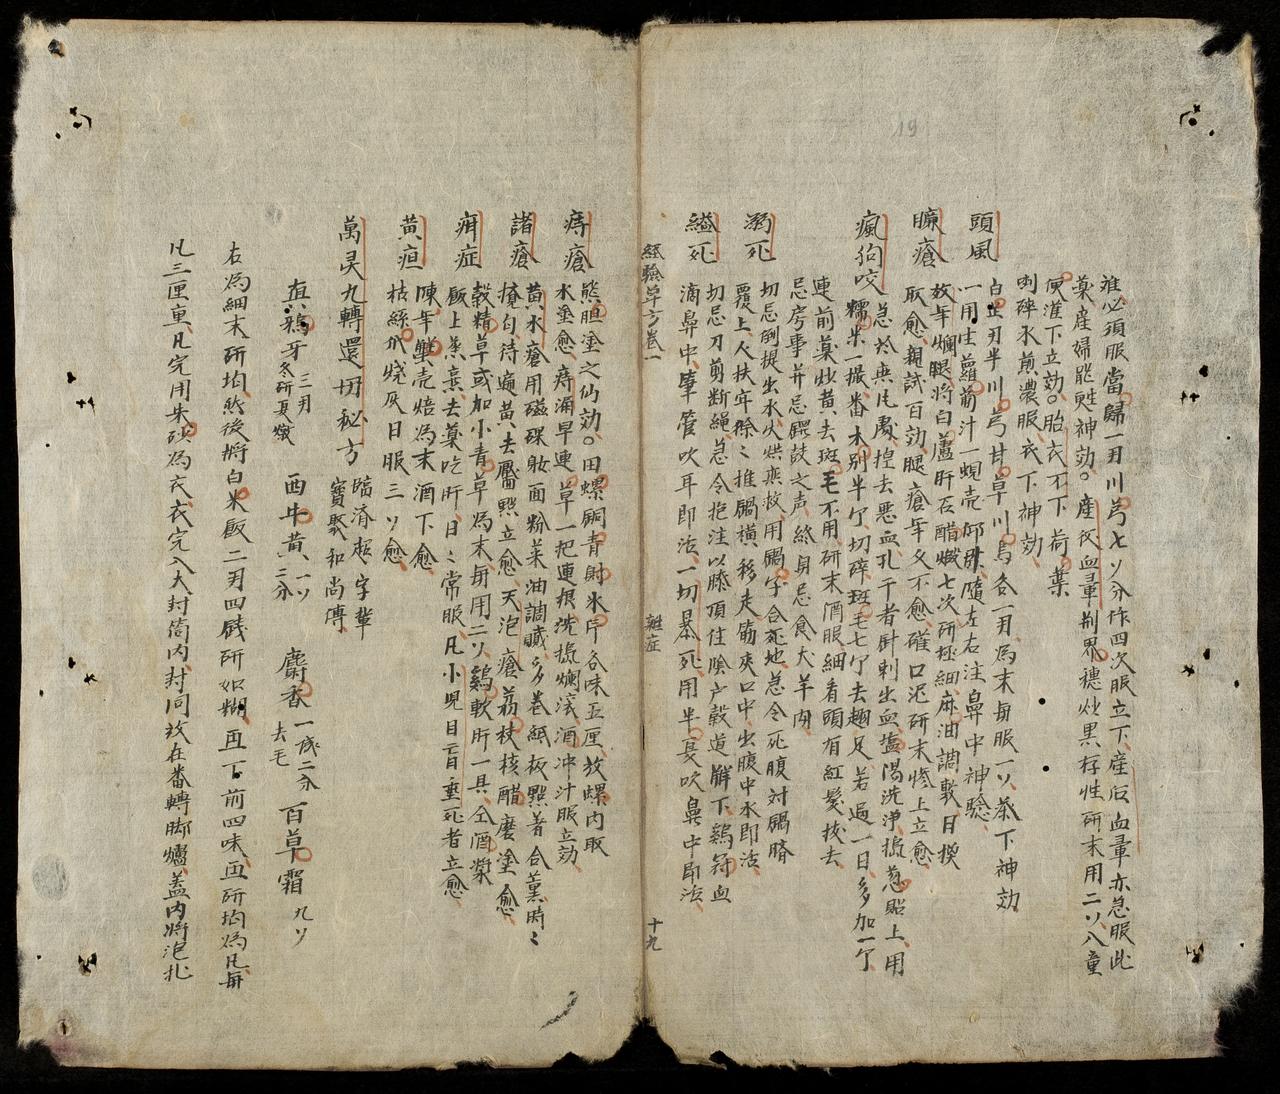 19
難必須服當歸一両川芎七ソ分作四次服立下産后血暈亦急服此
藥産婦能甦神効。産後血暈荆界穗炒黒存性研末用二ソ入童
便灌下立効。胎衣不下荷葉
剉碎水煎濃服衣下神効
頭風
白芷刃半川芎甘草川烏各一両為末毎服一ソ茶下神効
一用生蘿萄汁一蜆売仰卧隨左右注鼻中神驗
臁瘡
放年爛腿将白蘆肝石醋煆七次研極細麻油調敷日換
取愈親試百効腿瘡年久不愈確口泥研末惨上立愈
瘋狗咬
急於無風處捏去悪血孔干者針刺出血塩湯洗浄搗葱貼上用
糯米一撮番木別半个切碎斑毛七个去翅足若過一日多加一个
連前藥炒黄去斑毛不用研末酒服細看頭有紅髮拔去
忌房事并忌鑼鼓之声終身忌食犬羊肉
溺死
切忌倒提出水火烘燕救用鍋字合死地急令死腹対鍋臍
覆上人扶牢除〻推鍋橫移走筋夾口中出腹中水即活
縊死
切忌刀剪断繩急令抱注以膝頂住陰户穀道解下鷄冠血
滴鼻中筆管吹耳即活一切暴死用半夏吹鼻中即活
經驗草方卷一
雜症
十九
痔瘡
熊胆塗之仙効。田螺硐青射氷片各味五厘放螺内取
水塗愈痔漏旱連草一把連根洗搗爛滚酒冲汁服立効
諸瘡
黄水瘡用磁碟敀面粉菜油調贓多卷紙板㸃着合薰時〻
掩勻待遍黄去壓㸃立愈天泡瘡茘枝核醋磨塗愈
疳症
穀精草或加小青草為末毎用二ソ鷄軟肝一具仝酒漿
飯上蒸熹去藥吃肝日〻常服凡小児目盲垂死者立愈
黄疸
陳年蠶売焙為末酒下愈
枯絲爪燒灰日服三ソ愈
萬灵九轉還丹秘方
臨濟超字輩
寳聚和尚傳
真鴉牙
三両
冬研夏煆
西牛黄
一ソ
二分
麝香
一ソ二分
去毛
百草霜
九ソ
右為細末研均然後将白米飯二両四戲研如糊再下前四味再研均為凡毎
凡三厘重凡完用朱砂為衣衣完入大封筒内封同放在番轉脚爐盖内将泡扎